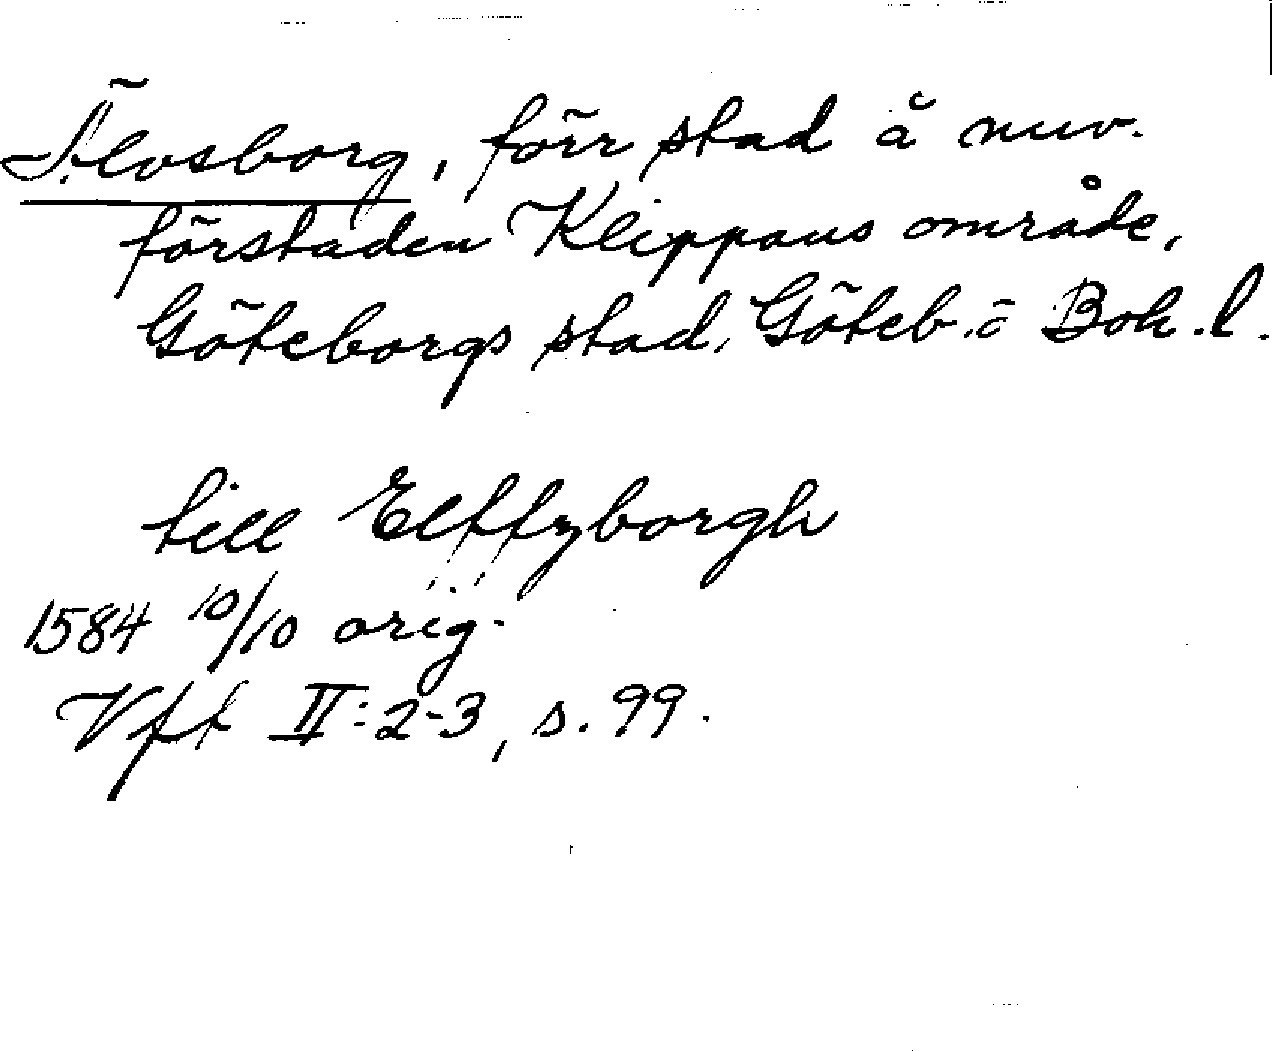 Älvsborg, förr stad å nuv.
förstaden Klippans område,
Göteborgs stad, Göteb. o Boh. l.
till Elffzborgh
1584 10/10 orig.
Vft II:2-3, s. 99.